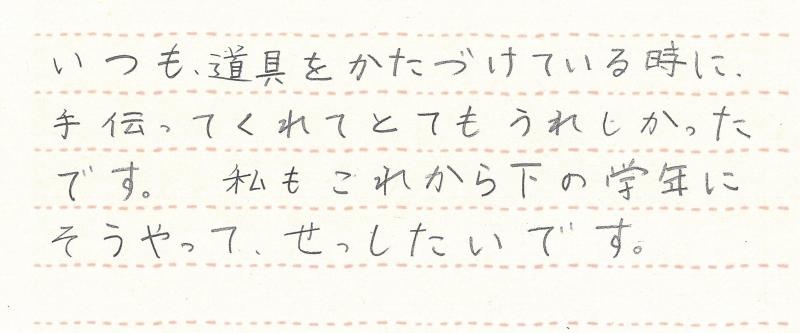 いつも、道具をかたづけている時に、
手伝ってくれてとてもうれしかった
です。　私もこれから下の学年に
そうやって、せっしたいです。